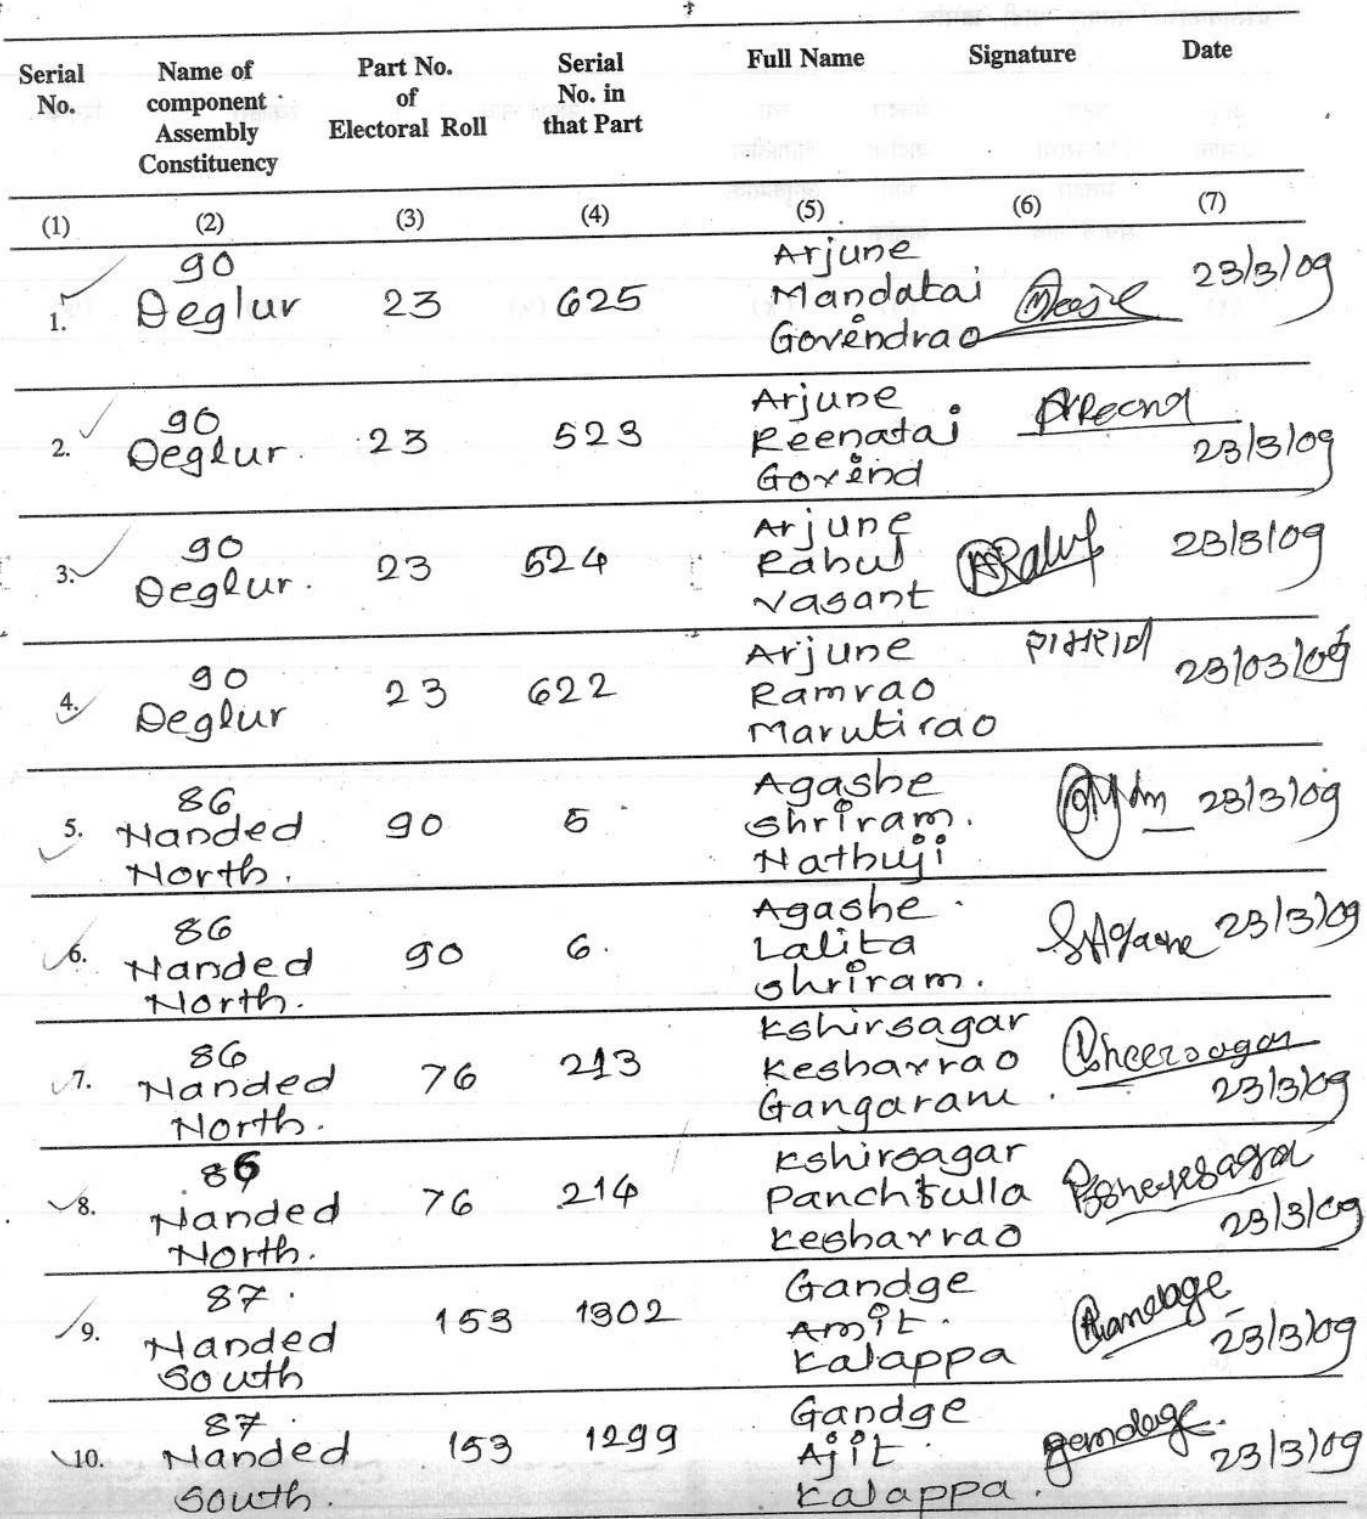 Serial No. Name of component Assembly Constituency Part No. of Electoral Roll Serial No. in that Part Full Name Signature Date
(1) (2) (3) (4) (5) (6) (7)
1. 90 Deglur 23 625 Arjune Mandatai Govindrao 23/3/09
2. 90 Deglur. 23 523 Arjune Reenatai Govind 23/3/09
3. 90 Deglur. 23 524 Arjune Rahul Vasant 23/3/09
4. 90 Deglur 23 622 Arjune Ramrao Marutirao 23/03/09
5. 86 Nanded North. 90 5 Agashe Shriram. Nathuji 23/3/09
6. 86 Nanded North. 90 6. Agashe Lalita Shriram. 23/3/09
7. 86 Nanded North. 76 213 Kshirsagar Kesharrao Gangaram. 23/3/09
8. 86 Nanded North. 76 214 Kshirsagar Panchfulla Kesharrao 23/3/09
9. 87. Nanded South 153 1302 Gandge Amit. Kalappa 23/3/09
10. 87. Nanded South. 153 1299 Gandge Ajit. Kalappa. 23/3/09